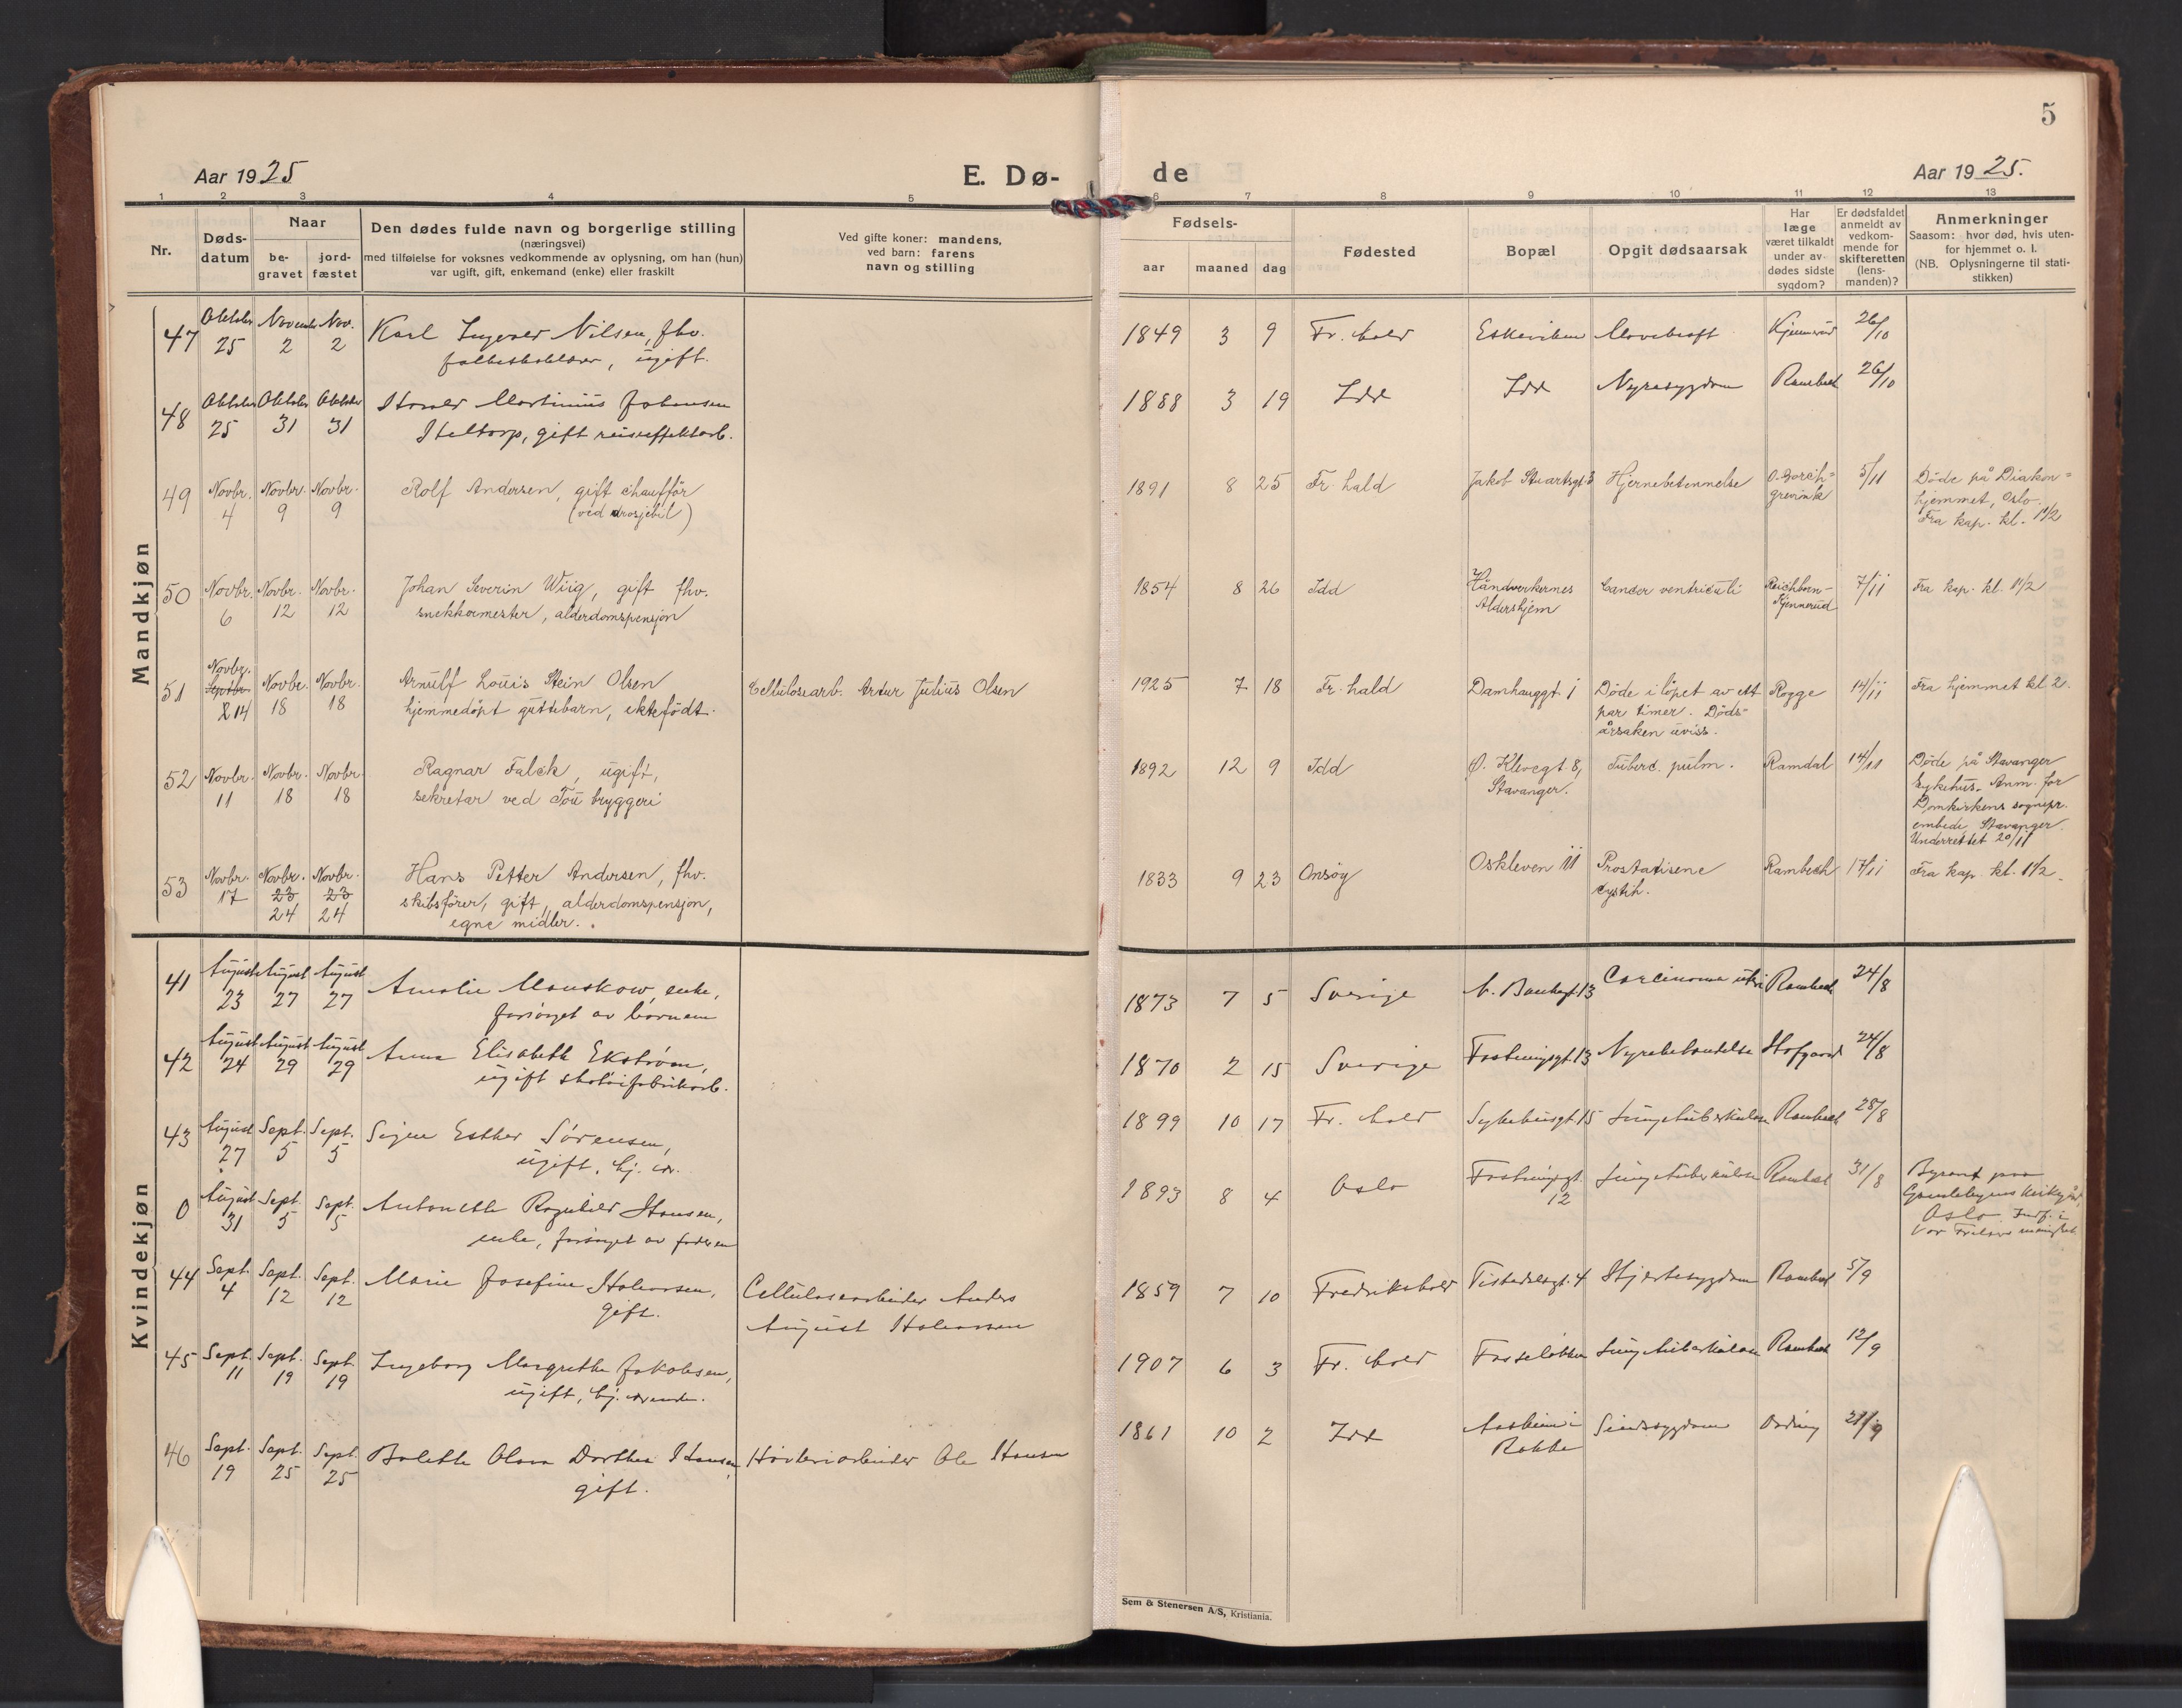 5
Aar 1925
E. Dø-
de
Aar 1925.
1 2 3 4 5 6 7 8 9 10 11 12 13
Nr.
Døds-
datum
Naar
be-
gravet
jord-
fæstet
Den dødes fulde navn og borgerlige stilling
(næringsvei)
med tilføielse for voksnes vedkommende av oplysning, om han (hun)
var ugift, gift, enkemand (enke) eller fraskilt
Ved gifte koner: mandens,
ved barn: farens
navn og stilling
Fødsels-
aar maaned dag
Fødested
Bopæl
Opgit dødsaarsak
Har
læge
været tilkaldt
under av-
dødes sidste
sygdom?
Er dødsfaldet
anmeldt av
vedkom-
mende for
skifteretten
(lens-
manden)?
Anmerkninger
Saasom: hvor død, hvis uten-
for hjemmet o. l.
(NB. Oplysningerne til stati-
stikken)
Mandkjøn
47 Oktober November Nov. Karl Ingvald Nilsen, fhv. 1849 3 9 Fr.hald Eskeviken Kjennerud 26/10
25 2 2 ugift.
48 Oktober Oktober Oktober Harald Martinius Johansen 1888 3 19 Idd Idd Nyresygdom Rambech 26/10
25 31 31 Steltorp, gift reiseeffektarb.
49 Novbr. Novbr. Novbr. Rolf Andersen, gift chauffør 1891 8 25 Fr.hald Jakob Stuartsgt. 3 Hjernebetennelse O. Borch= 5/11 Døde på Diakon=
4 9 9 (ved drosjebil) grevink hjemmet, Oslo.
Fra kap. kl. 1 1/2
50 Novbr. Novbr. Novbr. Johan Severin Wiig, gift fhv. 1854 8 26 Idd Håndverkernes Cancer ventriculi Reichborn- 7/11 Fra kap. kl. 1 1/2
6 12 12 snekkermester, alderdomspensjon Aldershjem Kjennerud
51 Novbr. Septbr. Novbr. Novbr. Arnulf Louis Stein Olsen Cellulosearb. Artur Julius Olsen 1925 7 18 Fr.hald Damhauggt. 1 Døde i løpet av ett Rogge 14/11 Fra hjemmet kl 2.
14 18 18 hjemmedøpt guttebarn, ektefødt. par timer. Døds-
årsaken uviss.
52 Novbr. Novbr. Novbr. Ragnar Falck, ugift, 1892 12 9 Idd Ø. Klevegt. 8, Tuberc. pulm. Ramdal 14/11 Døde på Stavanger
11 18 18 sekretær ved Tou bryggeri Stavanger. Sykehus. Anm. for
Domkirkens sognepr.
embede, Stavanger.
Underrettet 20/11
53 Novbr. Novbr. Novbr. Hans Petter Andersen, fhv. 1833 9 23 Onsøy Oskleven 11 Prostatisene Rambech 17/11 Fra kap. kl. 1 1/2.
17 23 23 skibsfører, gift, alderdomspensjon, cystih.
24 24 egne midler.
Kvindekjøn
41 August August August Amalie Mauskow, enke, 1873 7 5 Sverige N. Bankegt 13 Carcinoma uteri Rambech 24/8
23 27 27 forsørget av barnene
42 August August August Anna Elisabeth Ekstrøm, 1870 2 15 Sverige Fæstningsgt. 13 Nyrebetændelse Hofgaard 24/8
24 29 29 ugift skotøifabrikarb.
43 August Sept. Sept. Signe Esther Sørensen, 1899 10 17 Fr.hald Sykehusgt 15 Lungetuberkulose Rambech 28/8
27 5 5 ugift, hj. vær.
0 August Sept. Sept. Antonette Ragnhild Hansen, 1893 8 4 Oslo Fæstningsgt. Lungetuberkulose Rambech 31/8 Begravet paa
31 5 5 enke, forsørget av faderen 12 Gamlebyens kirkegård,
Oslo. Indf. i
Vor Frelsers menighet
44 Sept. Sept. Sept. Marie Josefine Halvorsen, Cellulosearbeider Anders 1859 7 10 Fredrikshald Tistedalsgt. 4 Hjertesygdom Rambech 5/9
4 12 12 gift. August Halvorsen
45 Sept. Sept. Sept. Ingeborg Margrethe Jakobsen, 1907 6 3 Fr.hald Fosseløkken Lungetuberkulose Rambech 12/9
11 19 19 ugift, hj. værende.
46 Sept. Sept. Sept. Bolette Olava Dorthea Hansen, Høvleriarbeider Ole Hansen 1861 10 2 Idd Aasheim i Sindssygdom 21/9
19 25 25 gift. Rokke
Sem & Stenersen A/S, Kristiania.